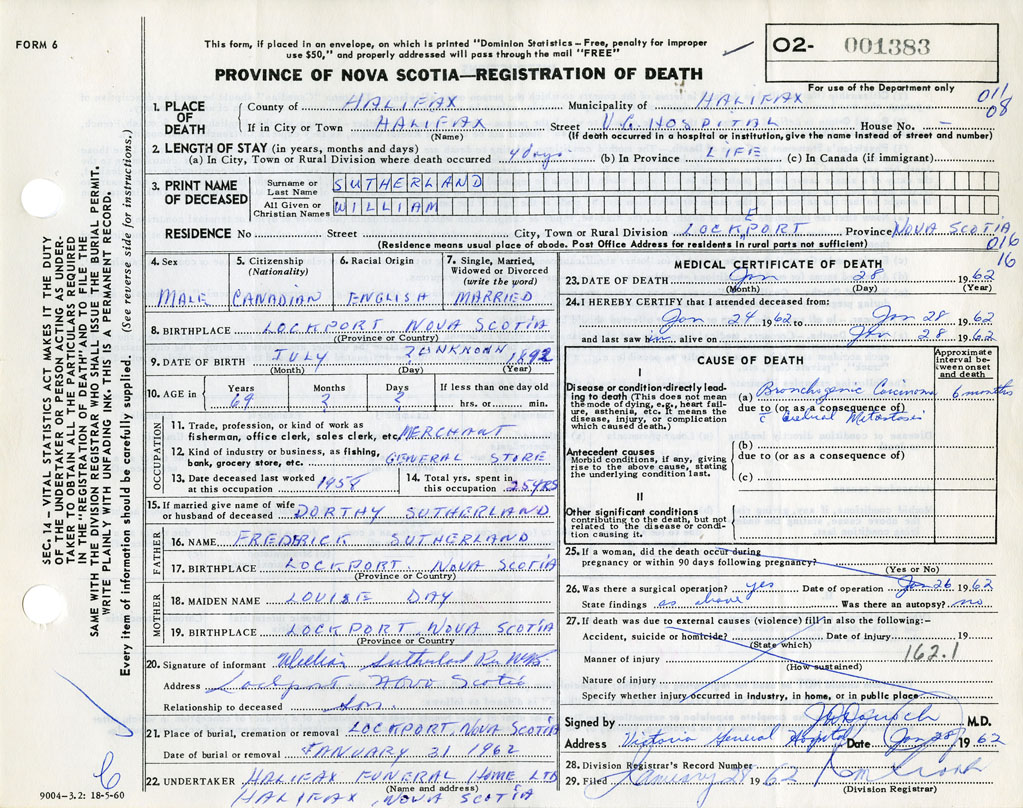 FORM 6
This form, if placed in an envelope, on which is printed "Dominion Statistics—Free, penalty for improper
use $50," and properly addressed will pass through the mail "FREE"
PROVINCE OF NOVA SCOTIA—REGISTRATION OF DEATH
02- 001383
For use of the Department only
011
08
SEC. 14 - VITAL STATISTICS ACT MAKES IT THE DUTY
OF THE UNDERTAKER OR PERSON ACTING AS UNDER-
TAKER TO OBTAIN ALL THE PARTICULARS REQUIRED
IN THE "REGISTRATION OF DEATH" AND TO FILE THE
SAME WITH THE DIVISION REGISTRAR WHO SHALL ISSUE THE BURIAL PERMIT.
WRITE PLAINLY WITH UNFADING INK. THIS IS A PERMANENT RECORD.
Every item of information should be carefully supplied. (See reverse side for instructions.)
1. PLACE OF DEATH
County of HALIFAX Municipality of HALIFAX
If in City or Town HALIFAX Street V.G. HOSPITAL House No. –
(Name) (If death occurred in a hospital or institution, give the name instead of street and number)
2. LENGTH OF STAY (in years, months and days)
(a) In City, Town or Rural Division where death occurred 4 days (b) In Province LIFE (c) In Canada (if immigrant)
3. PRINT NAME OF DECEASED
Surname or Last Name SUTHERLAND
All Given or Christian Names WILLIAM
RESIDENCE No Street City, Town or Rural Division LOCKEPORT Province NOVA SCOTIA
(Residence means usual place of abode. Post Office Address for residents in rural parts not sufficient)
016
16
4. Sex MALE
5. Citizenship (Nationality) CANADIAN
6. Racial Origin ENGLISH
7. Single, Married, Widowed or Divorced (write the word) MARRIED
8. BIRTHPLACE LOCKPORT NOVA SCOTIA
(Province or Country)
9. DATE OF BIRTH JULY ? UNKNOWN 1892
(Month) (Day) (Year)
10. AGE in Years 69 Months ? Days ? If less than one day old hrs. or min.
OCCUPATION
11. Trade, profession, or kind of work as
fisherman, office clerk, sales clerk, etc. MERCHANT
12. Kind of industry or business, as fishing,
bank, grocery store, etc. GENERAL STORE
13. Date deceased last worked at this occupation 1958
14. Total yrs. spent in this occupation 25 YRS
15. If married give name of wife
or husband of deceased DORTHY SUTHERLAND
FATHER
16. NAME FREDERICK SUTHERLAND
17. BIRTHPLACE LOCKPORT, NOVA SCOTIA
(Province or Country)
MOTHER
18. MAIDEN NAME LOUISE DAY
19. BIRTHPLACE LOCKPORT, NOVA SCOTIA
(Province or Country
20. Signature of informant William Sutherland
Address Lockport Nova Scotia
Relationship to deceased Son.
21. Place of burial, cremation or removal LOCKPORT, NOVA SCOTIA
Date of burial or removal JANUARY 31 1962
22. UNDERTAKER HALIFAX FUNERAL HOME LTD
(Name and address)
HALIFAX, NOVA SCOTIA
9004-3.2: 18-5-60
MEDICAL CERTIFICATE OF DEATH
23. DATE OF DEATH Jan 28 1962
(Month) (Day) (Year)
24. I HEREBY CERTIFY that I attended deceased from:
Jan 24 1962 to Jan 28 1962
and last saw him alive on Jan 28 1962
CAUSE OF DEATH
Approximate interval between onset and death
I
Disease or condition directly lead-
ing to death (This does not mean
the mode of dying, e.g., heart fail-
ure, asthenia, etc. It means the
disease, injury, or complication
which caused death.)
(a) Bronchogenic Carcinoma 6 months
due to (or as a consequence of)
c̄ Cerebral Metastasis
Antecedent causes
Morbid conditions, if any, giving
rise to the above cause, stating
the underlying condition last.
(b)
due to (or as a consequence of)
(c)
II
Other significant conditions
contributing to the death, but not
related to the disease or condi-
tion causing it.
25. If a woman, did the death occur during
pregnancy or within 90 days following pregnancy?
(Yes or No)
26. Was there a surgical operation? yes Date of operation Jan 26 1962
State findings as above Was there an autopsy? no
27. If death was due to external causes (violence) fill in also the following:–
Accident, suicide or homicide? Date of injury 19
(State which)
Manner of injury 162.1
(How sustained)
Nature of injury
Specify whether injury occurred in industry, in home, or in public place
Signed by M.D.
Address Victoria General Hospital Date Jan 28 1962
28. Division Registrar's Record Number
29. Filed January 29 1962
(Division Registrar)